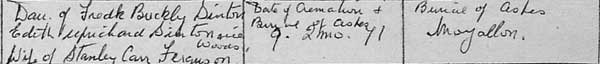 Dau. of Fredk Buckly Sinton
Edith Uprichard Sinton nee
Woods,
Wife of Stanley Carr Ferguson
Date of Cremation &
Burial of Ashes
9. 2mo. 71
Burial of Ashes
Moyallon.